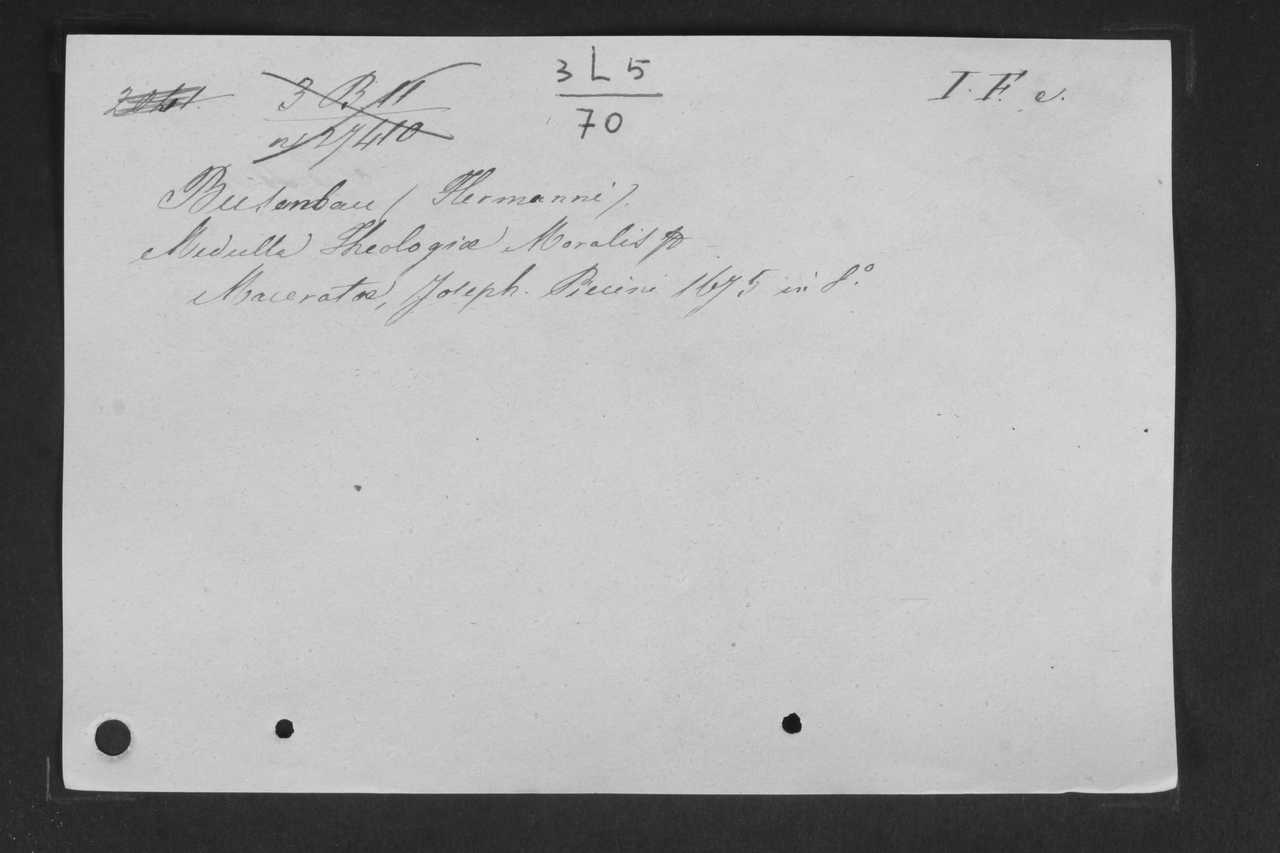 3 B 11
n 27410
3 L 5
70
I. F. e.
Busenbau (Hermanni).
Medulla Theologiæ Moralis
Maceratæ, Joseph. Piccini 1675 in 8.º